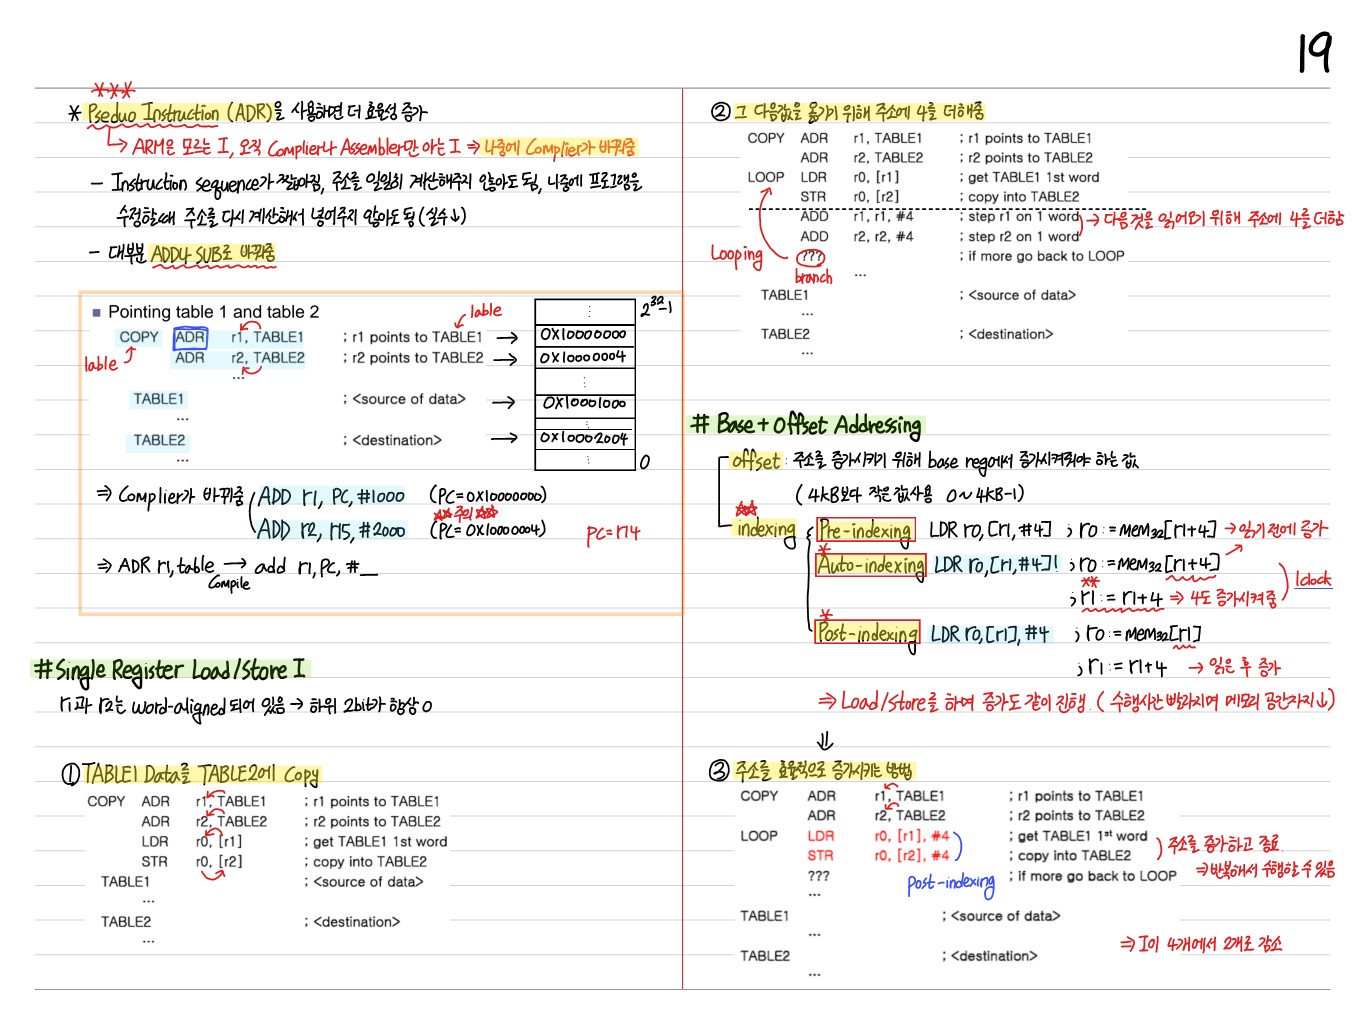 19
* Pseduo Instruction (ADR)을 사용하면 더 효율성 증가
↳ ARM은 모르는 I, 오직 Complier나 Assembler만 아는 I ⇒ 나중에 Complier가 바꿔줌
- Instruction sequence가 짧아짐, 주소를 일일히 계산해주지 않아도 됨, 나중에 프로그램을
수정할때 주소를 다시 계산해서 넣어주지 않아도 됨 (실수↓)
- 대부분 ADD나 SUB로 바꿔줌
■ Pointing table 1 and table 2
lable
COPY ADR r1, TABLE1 ; r1 points to TABLE1 →
lable
ADR r2, TABLE2 ; r2 points to TABLE2 →
...
TABLE1 ; <source of data> →
...
TABLE2 ; <destination> →
...
2^32-1
⋮
0X10000000
0X10000004
⋮
0X10001000
⋮
0X10002004
⋮
0
⇒ Complier가 바꿔줌 ADD r1, PC, #1000 (PC=0X10000000)
☆☆주의☆☆
ADD r2, r15, #2000 (PC=0X10000004) PC=r14
⇒ ADR r1, table → add r1, PC, #__
Compile
# Single Register Load/Store I
r1과 r2는 word-aligned 되어 있음 → 하위 2bit가 항상 0
① TABLE1 Data를 TABLE2에 Copy
COPY ADR r1, TABLE1 ; r1 points to TABLE1
ADR r2, TABLE2 ; r2 points to TABLE2
LDR r0, [r1] ; get TABLE1 1st word
STR r0, [r2] ; copy into TABLE2
TABLE1 ; <source of data>
...
TABLE2 ; <destination>
...
② 그 다음값을 옮기기 위해 주소에 4를 더해줌
COPY ADR r1, TABLE1 ; r1 points to TABLE1
ADR r2, TABLE2 ; r2 points to TABLE2
LOOP LDR r0, [r1] ; get TABLE1 1st word
STR r0, [r2] ; copy into TABLE2
ADD r1, r1, #4 ; step r1 on 1 word
→ 다음것을 읽어오기 위해 주소에 4를 더함
ADD r2, r2, #4 ; step r2 on 1 word
Looping ??? ; if more go back to LOOP
branch ...
TABLE1 ; <source of data>
...
TABLE2 ; <destination>
...
# Base + Offset Addressing
offset : 주소를 증가시키기 위해 base reg에서 증가시켜줘야 하는 값
( 4KB보다 작은 값사용 0 ~ 4KB-1)
☆☆
indexing Pre-indexing LDR r0, [r1, #4] ; r0 := mem32[r1+4] → 읽기 전에 증가
* Auto-indexing LDR r0, [r1, #4]! ; r0 := mem32[r1+4]
** ; r1 := r1+4 ⇒ 4도 증가시켜줌 1clock
* Post-indexing LDR r0, [r1], #4 ; r0 := mem32[r1]
; r1 := r1+4 → 읽은 후 증가
⇒ Load/Store를 하며 증가도 같이 진행. ( 수행시간 빨라지며 메모리 공간차지↓)
⇓
③ 주소를 효율적으로 증가시키는 방법
COPY ADR r1, TABLE1 ; r1 points to TABLE1
ADR r2, TABLE2 ; r2 points to TABLE2
LOOP LDR r0, [r1], #4 ; get TABLE1 1st word
주소를 증가하고 종료.
STR r0, [r2], #4 ; copy into TABLE2
??? ; if more go back to LOOP
⇒ 반복해서 수행할 수 있음
...
post-indexing
TABLE1 ; <source of data>
...
⇒ I이 4개에서 2개로 감소
TABLE2 ; <destination>
...